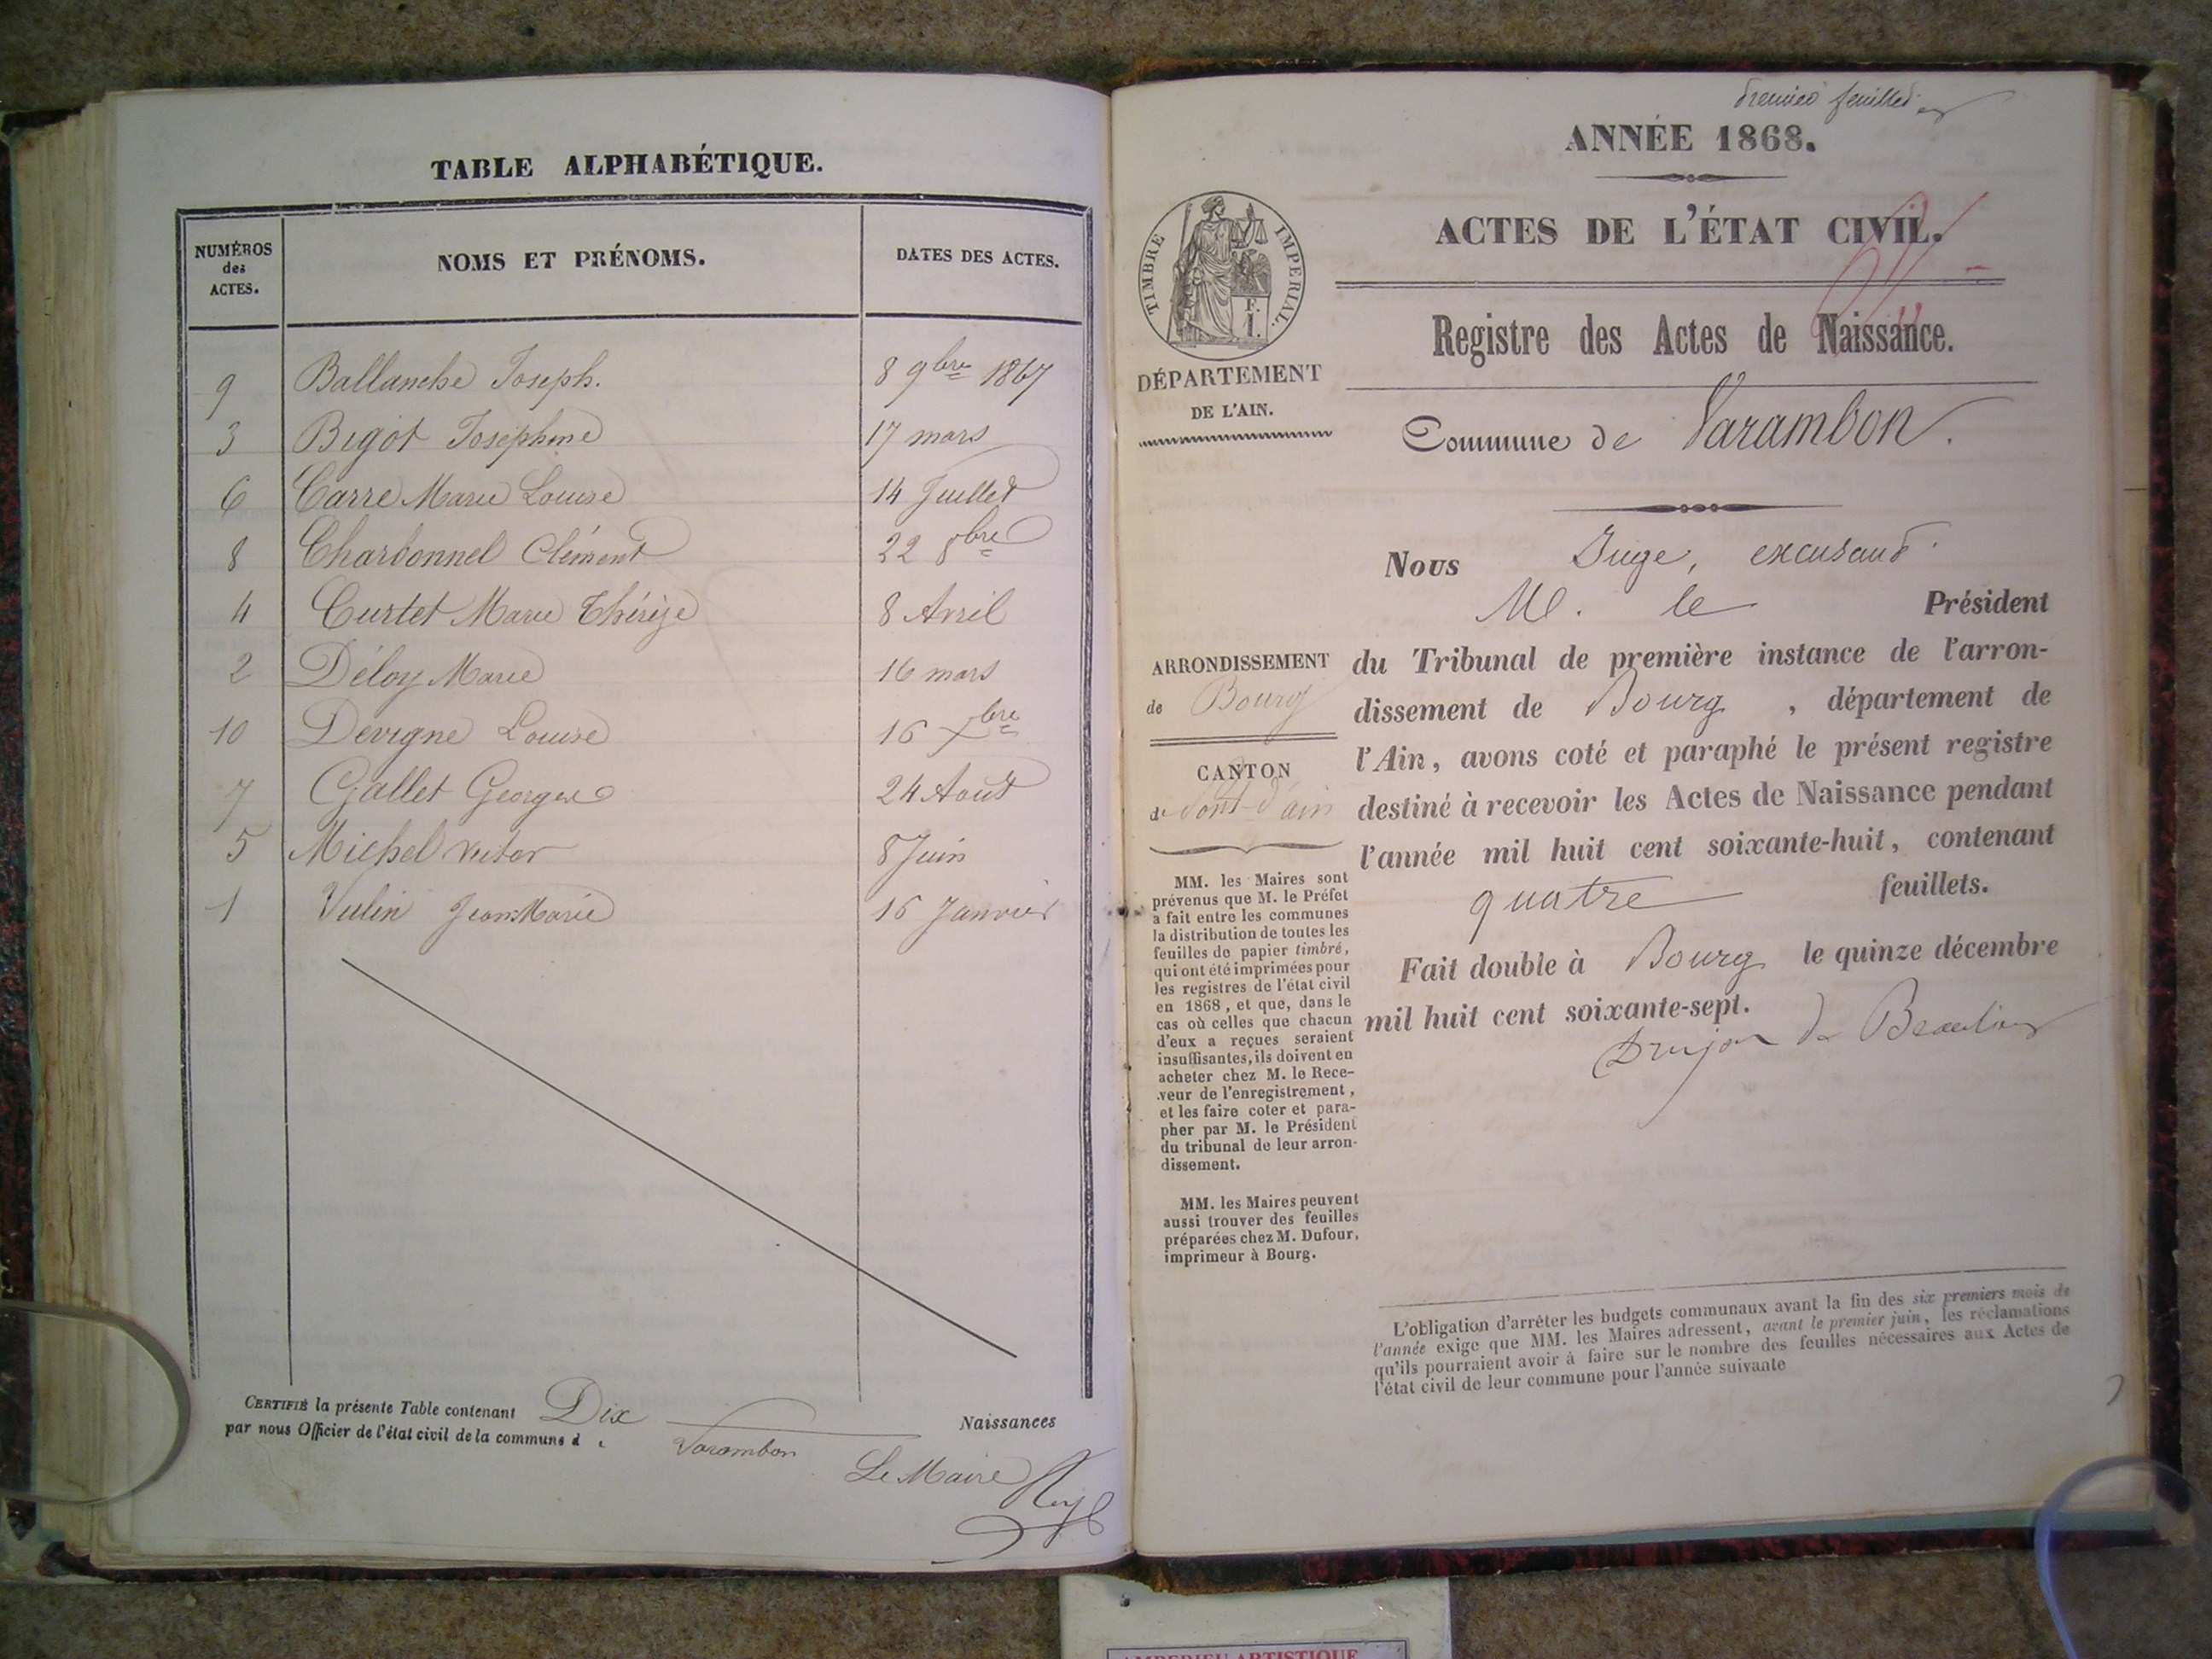 TABLE ALPHABÉTIQUE.
NUMÉROS des ACTES.
NOMS ET PRÉNOMS.
DATES DES ACTES.
9 Ballanche Joseph. 8 9bre 1867
3 Bigot Joséphine 17 mars
6 Carre Marie Louise 14 Juillet
8 Charbonnel Clément 22 8bre
4 Curtet Marie Thérèze 8 Avril
2 Déloy Marie 16 mars
10 Devigne Louise 16 Xbre
7 Gallet George 24 Aout
5 Michel Victor 8 Juin
1 Vulin Jean Marie 16 Janvier
CERTIFIÉ la présente Table contenant Dix Naissances
par nous Officier de l'état civil de la commune d Varambon
Le Maire
premier feuillet
ANNÉE 1868.
ACTES DE L'ÉTAT CIVIL.
TIMBRE IMPERIAL.
F. I.
DÉPARTEMENT
DE L'AIN.
Registre des Actes de Naissance.
Commune de Varambon.
Nous Juge, excusant
M. le Président
du Tribunal de première instance de l'arron-
dissement de Bourg , département de
l'Ain, avons coté et paraphé le présent registre
destiné à recevoir les Actes de Naissance pendant
l'année mil huit cent soixante-huit, contenant
quatre feuillets.
Fait double à Bourg le quinze décembre
mil huit cent soixante-sept.
Drujon de Beaulieu
ARRONDISSEMENT
de Bourg
CANTON
de Pont-d'ain
MM. les Maires sont
prévenus que M. le Préfet
a fait entre les communes
la distribution de toutes les
feuilles de papier timbré,
qui ont été imprimées pour
les registres de l'état civil
en 1868, et que, dans le
cas où celles que chacun
d'eux a reçues seraient
insuffisantes, ils doivent en
acheter chez M. le Rece-
veur de l'enregistrement,
et les faire coter et para-
pher par M. le Président
du tribunal de leur arron-
dissement.
MM. les Maires peuvent
aussi trouver des feuilles
préparées chez M. Dufour,
imprimeur à Bourg.
L'obligation d'arrêter les budgets communaux avant la fin des six premiers mois de
l'année exige que MM. les Maires adressent, avant le premier juin, les réclamations
qu'ils pourraient avoir à faire sur le nombre des feuilles nécessaires aux Actes de
l'état civil de leur commune pour l'année suivante
AMBERIEU ARTISTIQUE